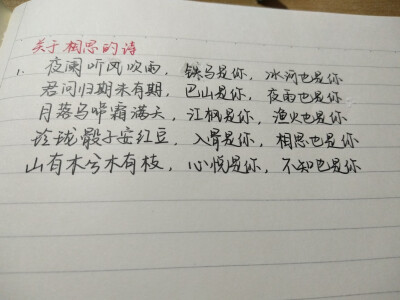 关于相思的诗
1. 夜阑听风吹雨，铁马是你，冰河也是你
君问归期未有期，巴山是你，夜雨也是你
月落乌啼霜满天，江枫是你，渔火也是你
玲珑骰子安红豆，入骨是你，相思也是你
山有木兮木有枝，心悦是你，不知也是你